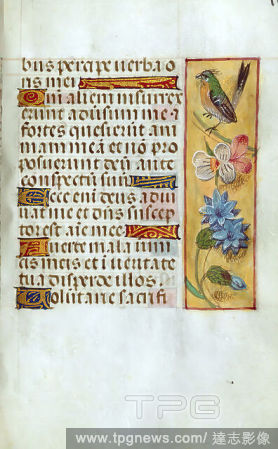 bus percipe verba o
ris mei
Qm alieni insurrex
erunt adusum me &
fortes quesierunt ani
mam meā et nō pro
posuerunt deū ante
conspectū suū
Ecce eni deus adiu
uat me et dns suscep
tor est aīe mee
Auerte mala inim
cis meis et ī ueritate
tua disperde illos
Uolūtarie sacrifi
TPG
www.tpgnews.com/達志影像